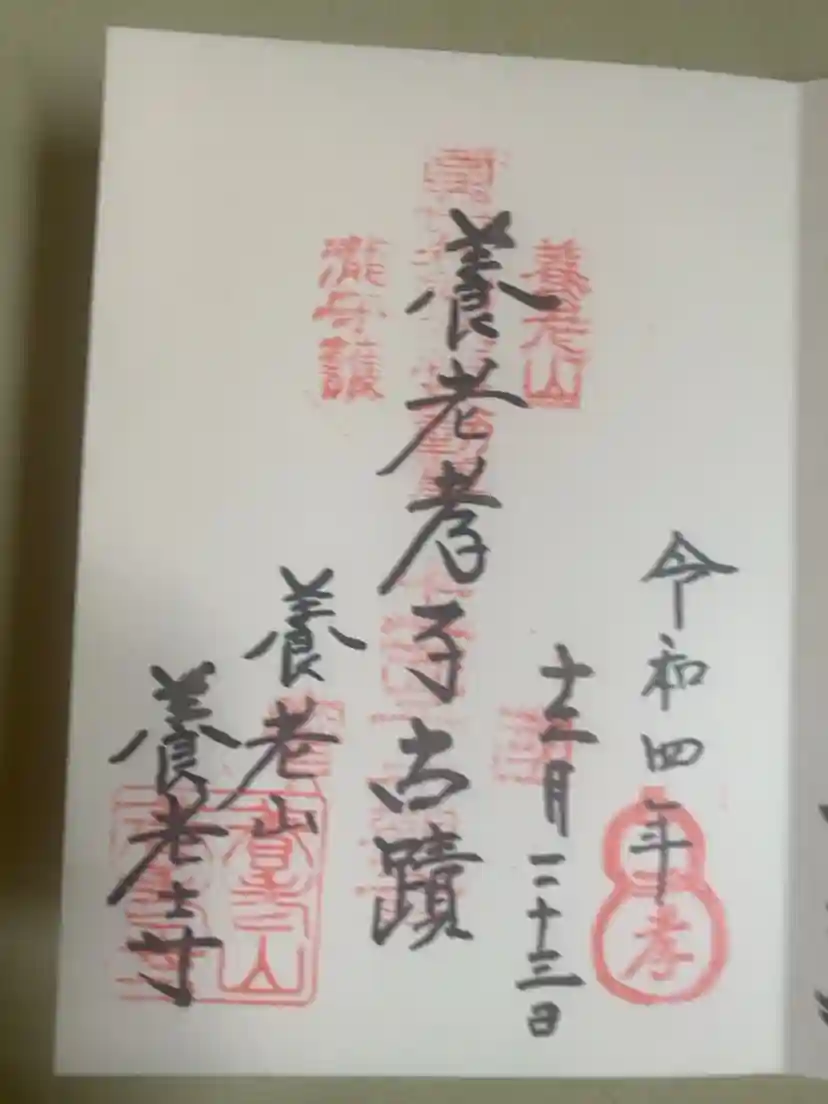 令和四年
十二月二十三日
養老孝子古蹟
養老山
養老寺
養老山
瀧守護
孝